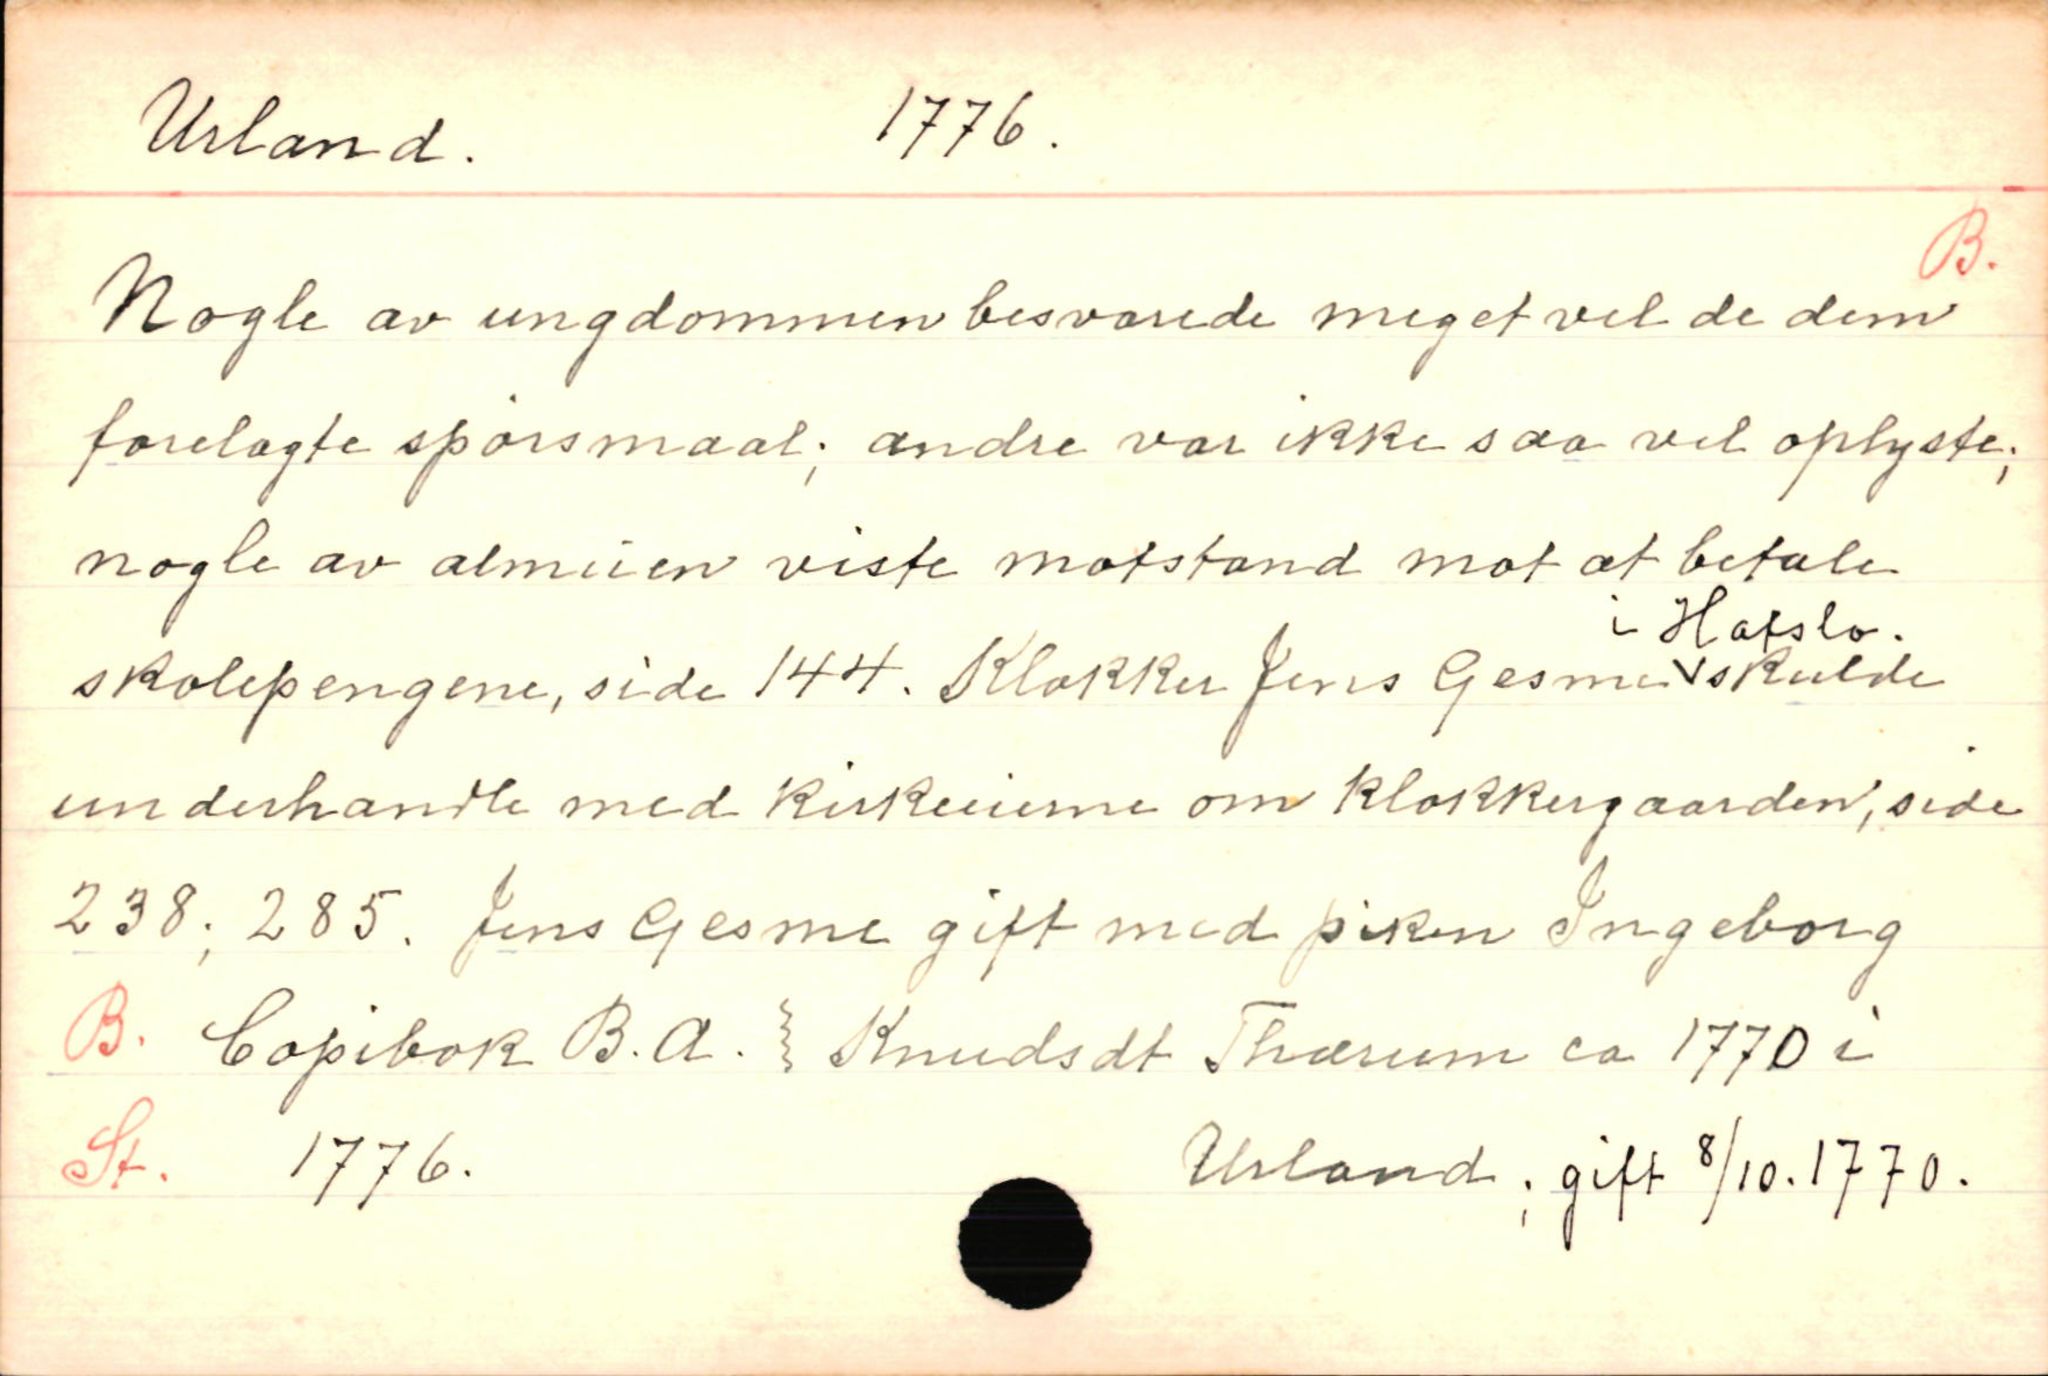 Urland. 1776.
B.
Nogle av ungdommen besvarede meget vel de dem
forelagte spörsmaal; andre var ikke saa vel oplyste;
nogle av almuen viste motstand mot at betale
i Hafslo.
skolepengene, side 144. Klokker Jens Gesme skulde
underhandle med kirkeeierne om klokkergaarden, side
238; 285. Jens Gesme gift med piken Ingeborg
B. Copibok B. A. Knudsdt Thærum ca 1770 i
St. 1776. Urland; gift 8/10. 1770.